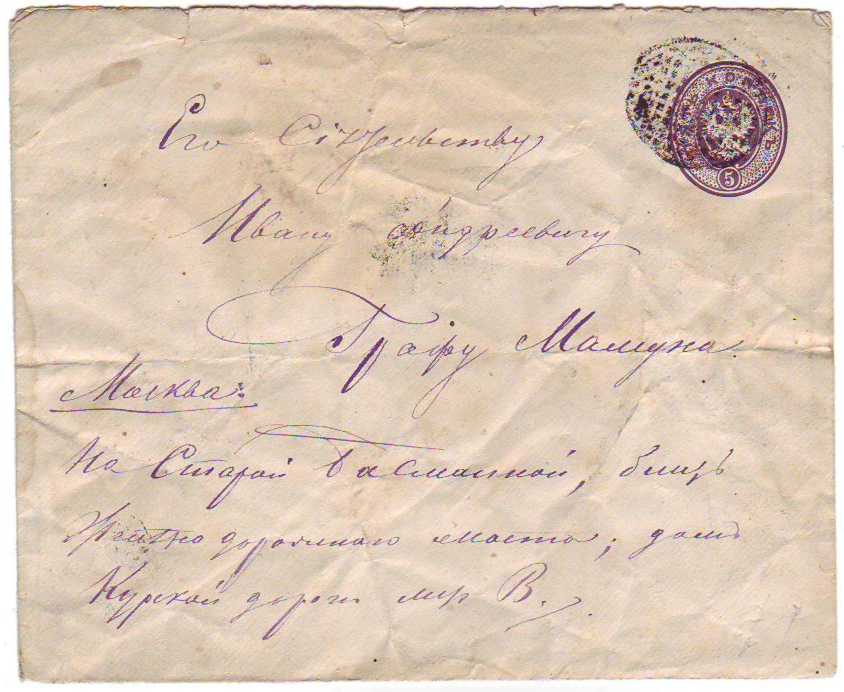 5
Его Сіятельству
Ивану Андреевичу
Графу Мамуна
Москва:
На Старой Басманной, близъ
Желѣзно дорожнаго моста, домъ
Курской дороги В.